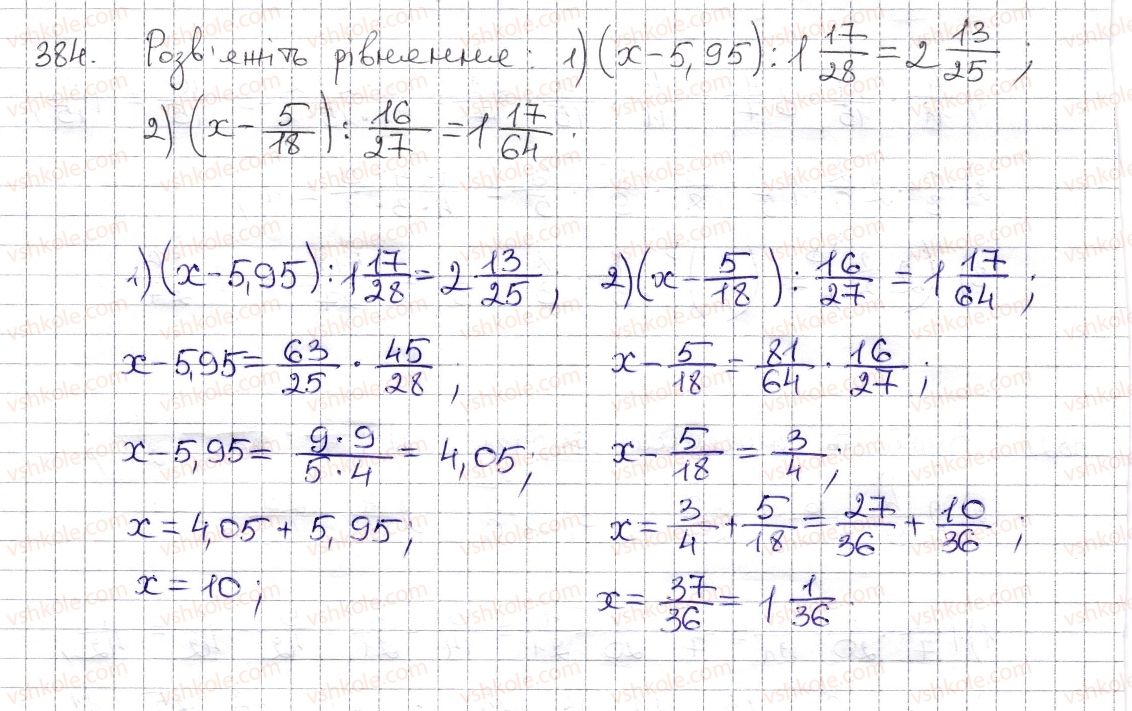 384. Розв'яжіть рівняння: 1) (x - 5,95) : 1 17/28 = 2 13/25 ;
2) (x - 5/18) : 16/27 = 1 17/64 .
1) (x - 5,95) : 1 17/28 = 2 13/25 ;
x - 5,95 = 63/25 · 45/28 ;
x - 5,95 = 9·9/5·4 = 4,05 ;
x = 4,05 + 5,95 ;
x = 10 ;
2) (x - 5/18) : 16/27 = 1 17/64 ;
x - 5/18 = 81/64 · 16/27 ;
x - 5/18 = 3/4 ;
x = 3/4 + 5/18 = 27/36 + 10/36 ;
x = 37/36 = 1 1/36 .